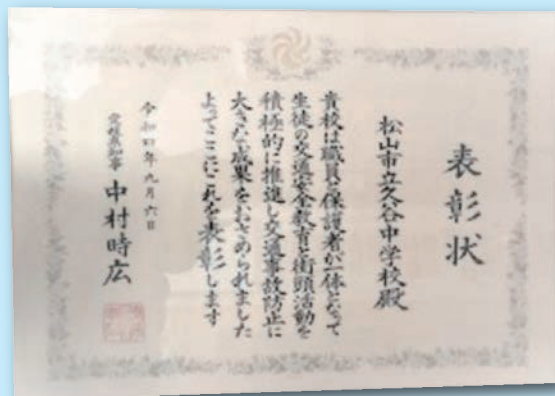 表彰状
松山市立久谷中学校殿
貴校は職員と保護者が一体となって
生徒の交通安全教育と街頭活動を
積極的に推進し交通事故防止に
大きな成果をおさめられました
よってここにこれを表彰します
令和四年九月六日
愛媛県知事 中村時広